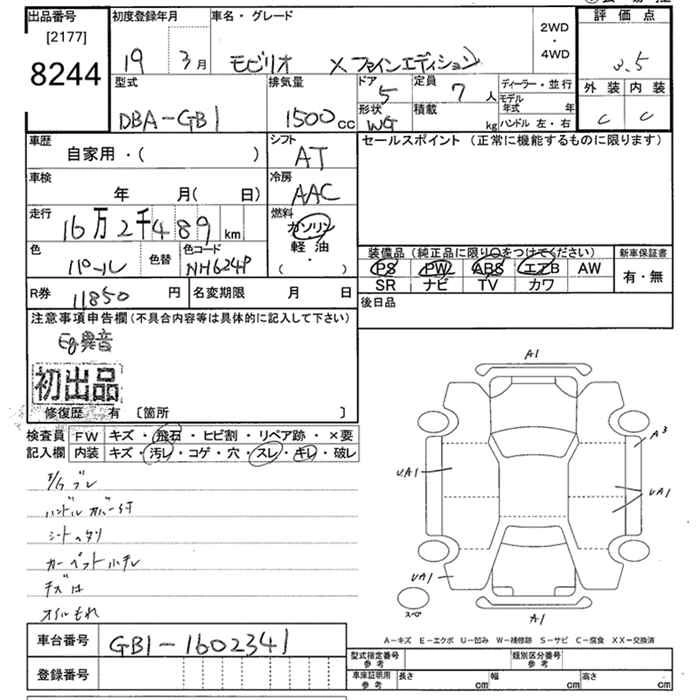 出品番号
[2177]
8244
初度登録年月
19 3月
車名・グレード
モビリオ X ファインエディション
2WD
・
4WD
評価点
3.5
外装 内装
C C
型式
DBA-GB1
排気量
1500cc
ドア 5
形状 WG
定員 7 人
積載 kg
ディーラー・並行
モデル年式 年
ハンドル 左・右
車歴
自家用・( )
シフト
AT
セールスポイント(正常に機能するものに限ります)
車検
年 月( 日)
冷房
AAC
走行
16万2千489km
燃料
ガソリン
軽油
( ・ )
色
パール
色替
色コード
NH624P
装備品(純正品に限り○をつけてください)
PS PW ABS エアB AW
SR ナビ TV カワ
新車保証書
有・無
R券 11850 円
名変期限 月 日
後日品
注意事項申告欄(不具合内容等は具体的に記入して下さい)
Eg異音
初出品
修復歴 有 〔箇所 〕
検査員記入欄
FW キズ・飛石・ヒビ割・リペア跡・×要
内装 キズ・汚レ・コゲ・穴・スレ・キレ・破レ
ハンドルカバー付
シートヘタリ
キズ凹
オイルもれ
A1
A3
UA1
UA1
UA1
スペア
A1
A-キズ E-エクボ U-凹み W-補修跡 S-サビ C-腐食 XX-交換済
車台番号
GB1-1602341
登録番号
型式指定番号
参考
類別区分番号
参考
車庫証明用
参考
長さ cm 幅 cm 高さ cm